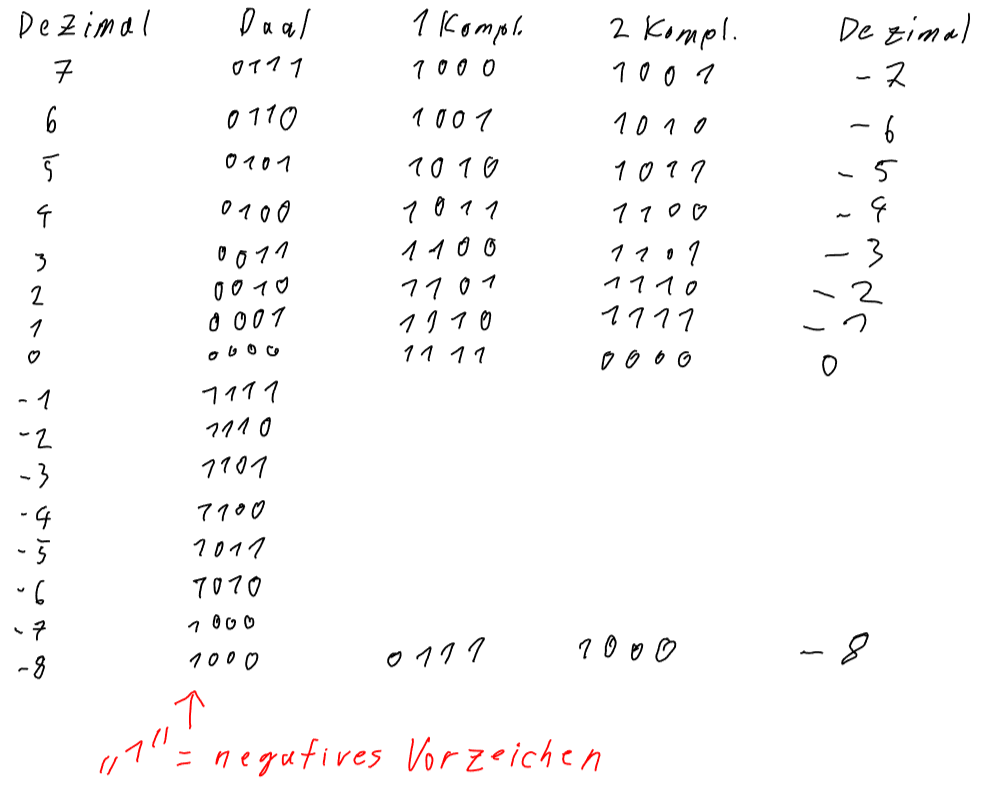 Dezimal Dual 1 Kompl. 2 Kompl. Dezimal
7 0111 1000 1001 -7
6 0110 1001 1010 -6
5 0101 1010 1011 -5
4 0100 1011 1100 -4
3 0011 1100 1101 -3
2 0010 1101 1110 -2
1 0001 1110 1111 -1
0 0000 1111 0000 0
-1 1111
-2 1110
-3 1101
-4 1100
-5 1011
-6 1010
-7 1000
-8 1000 0111 1000 -8
„1" = negatives Vorzeichen